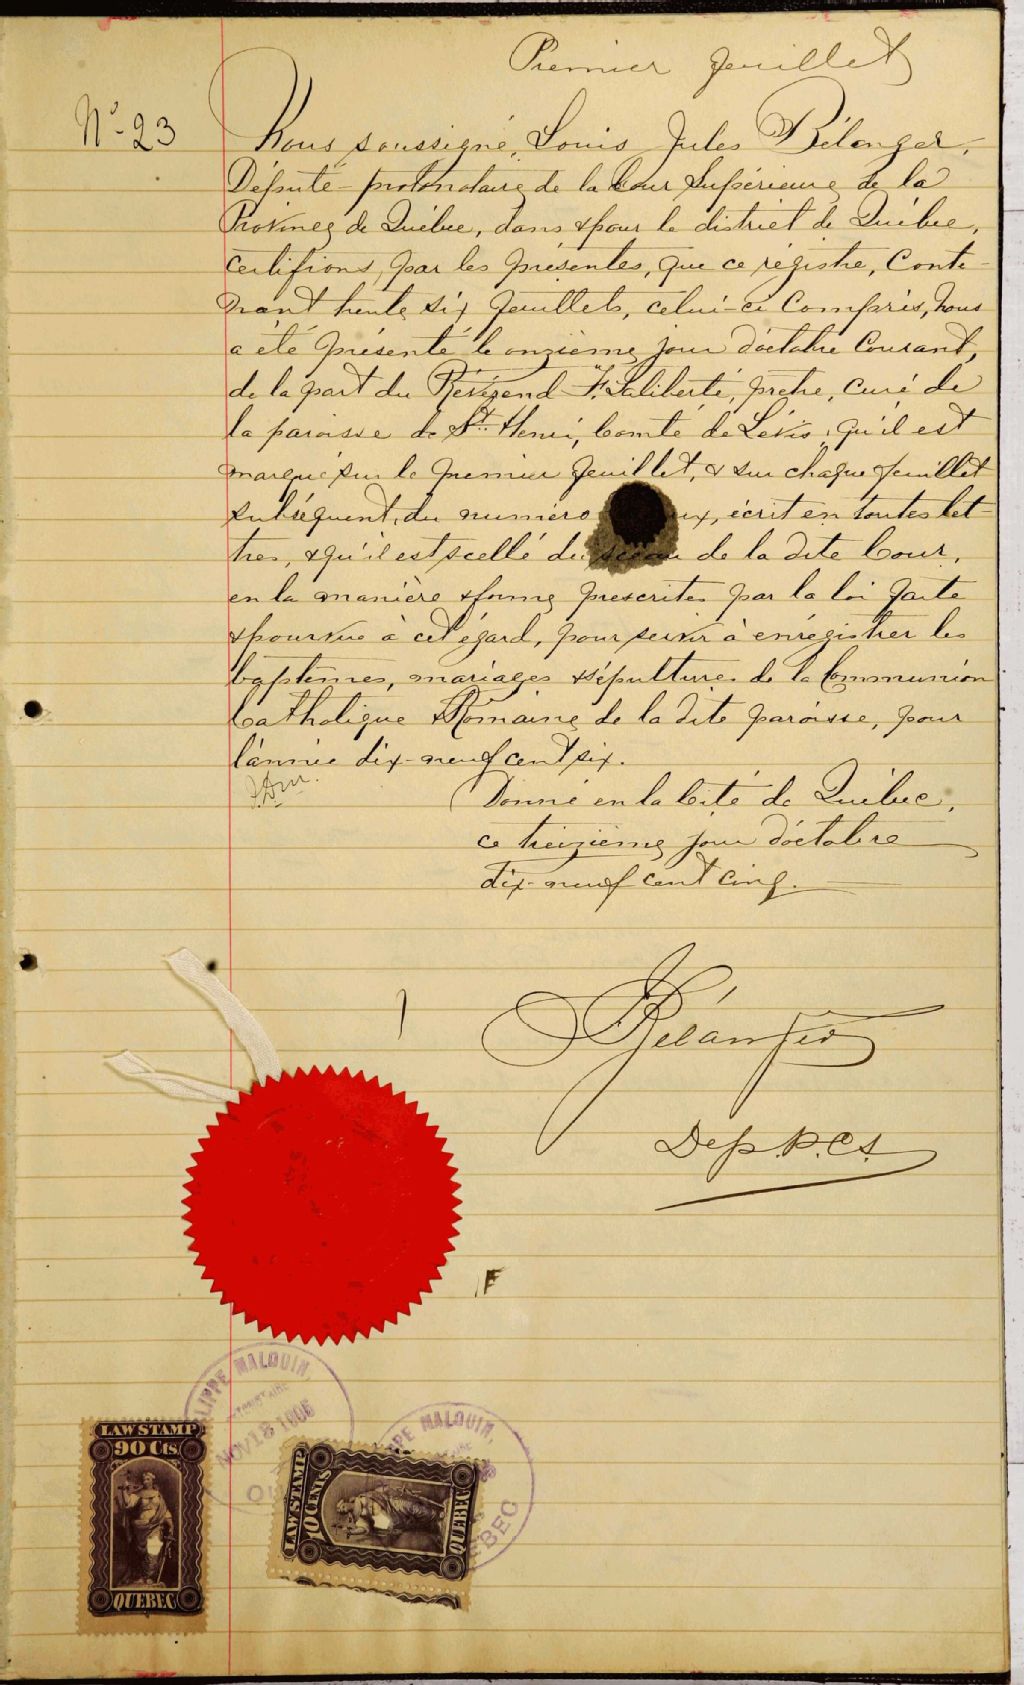 Premier feuillet
No - 23
Nous soussigné, Louis Jules Bélanger,
Député-protonotaire de la Cour Supérieure de la
Province de Québec, dans & pour le district de Québec,
certifions, par les présentes, que ce régistre, conte-
nant trente six feuillets, celui-ci compris, nous
a été présenté le onzième jour d'octobre courant,
de la part du Révérend F. Laliberté, prêtre, curé de
la paroisse de St. Henri, Comté de Lévis; qu'il est
marqué sur le premier feuillet, & sur chaque feuillet
subséquent, du numéro ux, écrit en toutes let-
tres, & qu'il est scellé du sceau de la dite Cour,
en la manière & forme prescrites par la loi faite
& pourvue à cet égard, pour servir à enrégistrer les
baptêmes, mariages & sépultures de la Communion
Catholique & Romaine de la dite paroisse, pour
l'année dix-neuf cent six.
Donné en la Cité de Québec,
ce treizième jour d'octobre
dix-neuf cent cinq.
Bélanger
Dep. P.C.S.
F
LIPPE MALOUIN,
NOV 18
PPE MALOUIN,
EBEC
LAW STAMP
90 Cts.
QUEBEC
LAW STAMP
10 CENTS
QUEBEC